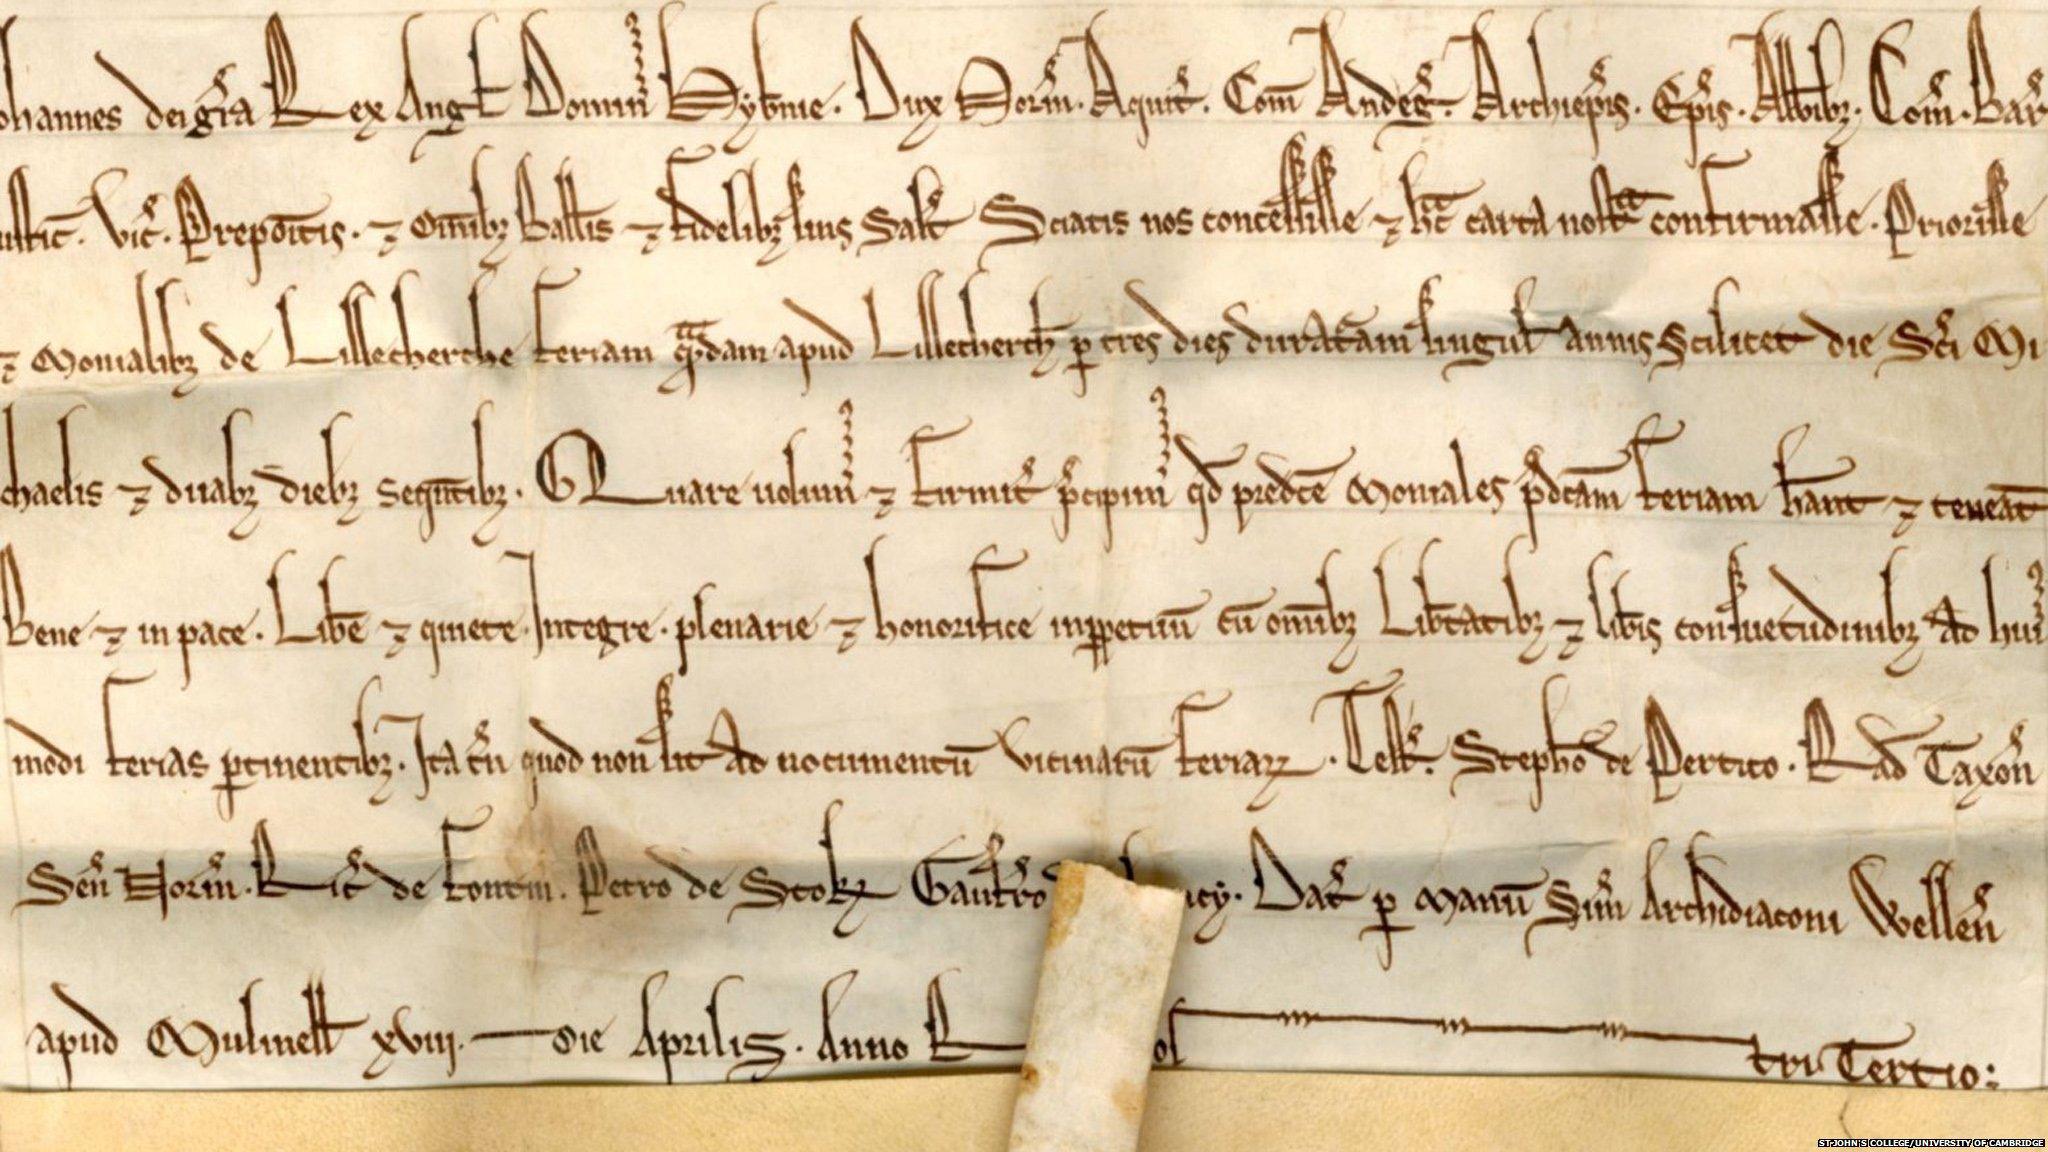 ohannes dei gr̃a Rex Angl̃ Domin̉ Hyb̃nie. Dux Norm̃. Aquit̃. Com̃ Andeg̃. Archiep̃is. Ep̃is. Abb̃ibꝫ. Com̃. Bar̃
ustic̃. Vic̃. Prepõitis. ⁊ Om̃ibꝫ Ball̃is ⁊ fidelibꝫ suis Sal̃t Sciatis nos concessisse ⁊ hᵃc carta nostᵃ confirmasse. Priorisse
⁊ Monialibꝫ de Lillecherche feriam qᵃndam apud Lillecherch̃ ꝑ tres dies durat̃am singul̃ annis Scilicet die Sc̃i Mi
chaelis ⁊ duabꝫ diebꝫ seqũtibꝫ. Quare uolum̉ ⁊ firmit̃ p̃cipim̉ qd̃ predc̃e Moniales p̃dc̃am feriam hãnt ⁊ teneãt
Bene ⁊ in pace. Lib̃e ⁊ quiete. Integre. plenarie ⁊ honorifice inꝑpetuũ cũ om̃ibꝫ Lib̃tatibꝫ ⁊ lib̃is consuetudinibꝫ Ad huỉ
modi ferias ꝑtinentibꝫ. Ita tñ quod non sit Ad nocumentũ vicinarũ feriaꝝ. Test̃. Steph̃o de Pertico. Rad̃ Taxoñ
Señ Norm̃. Ric̃ de Fontñ. Petro de Stokꝭ Gaut̃ro cy. Dat̃ ꝑ Manũ Sim̃ Archidiaconi Welleñ
apud Mulinell̃ xviii. die Aprilis. Anno R os
tri Tertio:
ST JOHN'S COLLEGE/UNIVERSITY OF CAMBRIDGE